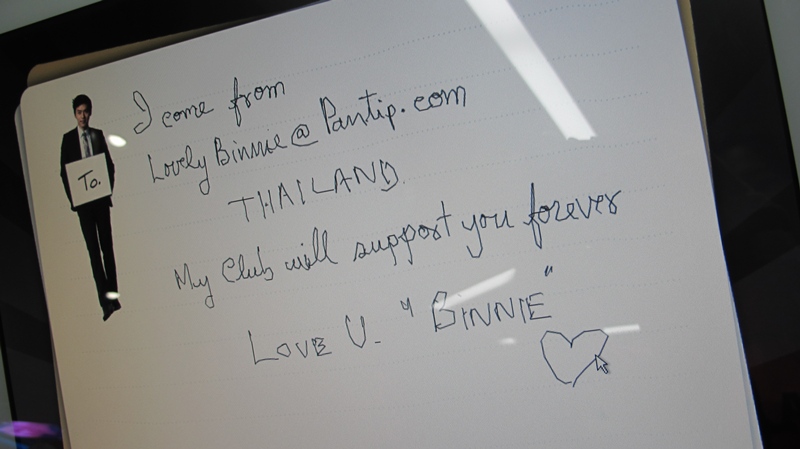 To.
I come from
Lovely Binnie@Pantip.com
THAILAND
My Club will support you forever
LOVE U. "BINNIE"